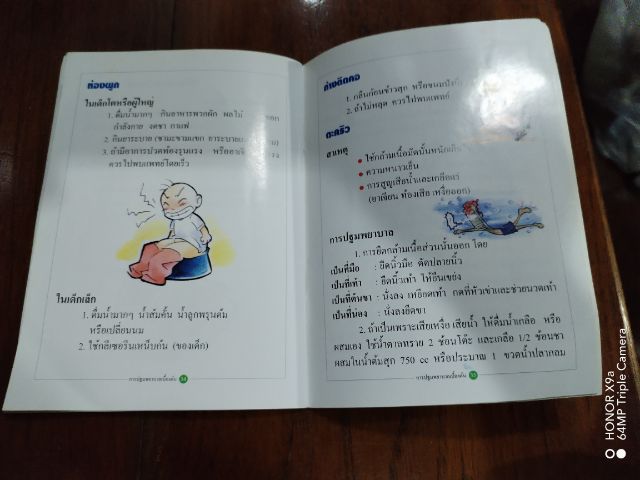 ท้องผูก
ในเด็กโตหรือผู้ใหญ่
1. ดื่มน้ำมากๆ กินอาหารพวกผัก ผลไม้ ออก
กำลังกาย งดชา กาแฟ
2. กินยาระบาย (ชามะขามแขก ยาระบาย
3. ถ้ามีอาการปวดท้องรุนแรง หรืออาเจียน
ควรไปพบแพทย์โดยเร็ว
ในเด็กเล็ก
1. ดื่มน้ำมากๆ น้ำส้มคั้น น้ำลูกพรุนต้ม
หรือเปลี่ยนนม
2. ใช้กลีเซอรีนเหน็บก้น (ของเด็ก)
การปฐมพยาบาลเบื้องต้น 34
ก้างติดคอ
1. กลืนก้อนข้าวสุก หรือขนมปัง
2. ถ้าไม่หลุด ควรไปพบแพทย์
ตะคริว
สาเหตุ
ใช้กล้ามเนื้อมัดนั้นหนักเกิน
ความหนาวเย็น
การสูญเสียน้ำและเกลือแร่
(อาเจียน ท้องเสีย เหงื่อออก)
การปฐมพยาบาล
1. การยืดกล้ามเนื้อส่วนนั้นออก โดย
เป็นที่มือ : ยืดนิ้วมือ ดัดปลายนิ้ว
เป็นที่เท้า : ยืดนิ้วเท้า ให้ยืนเขย่ง
เป็นที่ต้นขา : นั่งลง เหยียดเท้า กดที่หัวเข่าและช่วยนวดเท้า
เป็นที่น่อง : นั่งลงยืดขา
2. ถ้าเป็นเพราะเสียเหงื่อ เสียน้ำ ให้ดื่มน้ำเกลือ หรือ
ผสมเอง ใช้น้ำตาลทราย 2 ช้อนโต๊ะ และเกลือ 1/2 ช้อนชา
ผสมในน้ำต้มสุก 750 cc หรือประมาณ 1 ขวดน้ำปลากลม
การปฐมพยาบาลเบื้องต้น 35
HONOR X9a
64MP Triple Camera